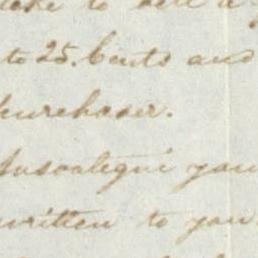 to sell a
to 25. Cents and
purchaser.
you
written to you